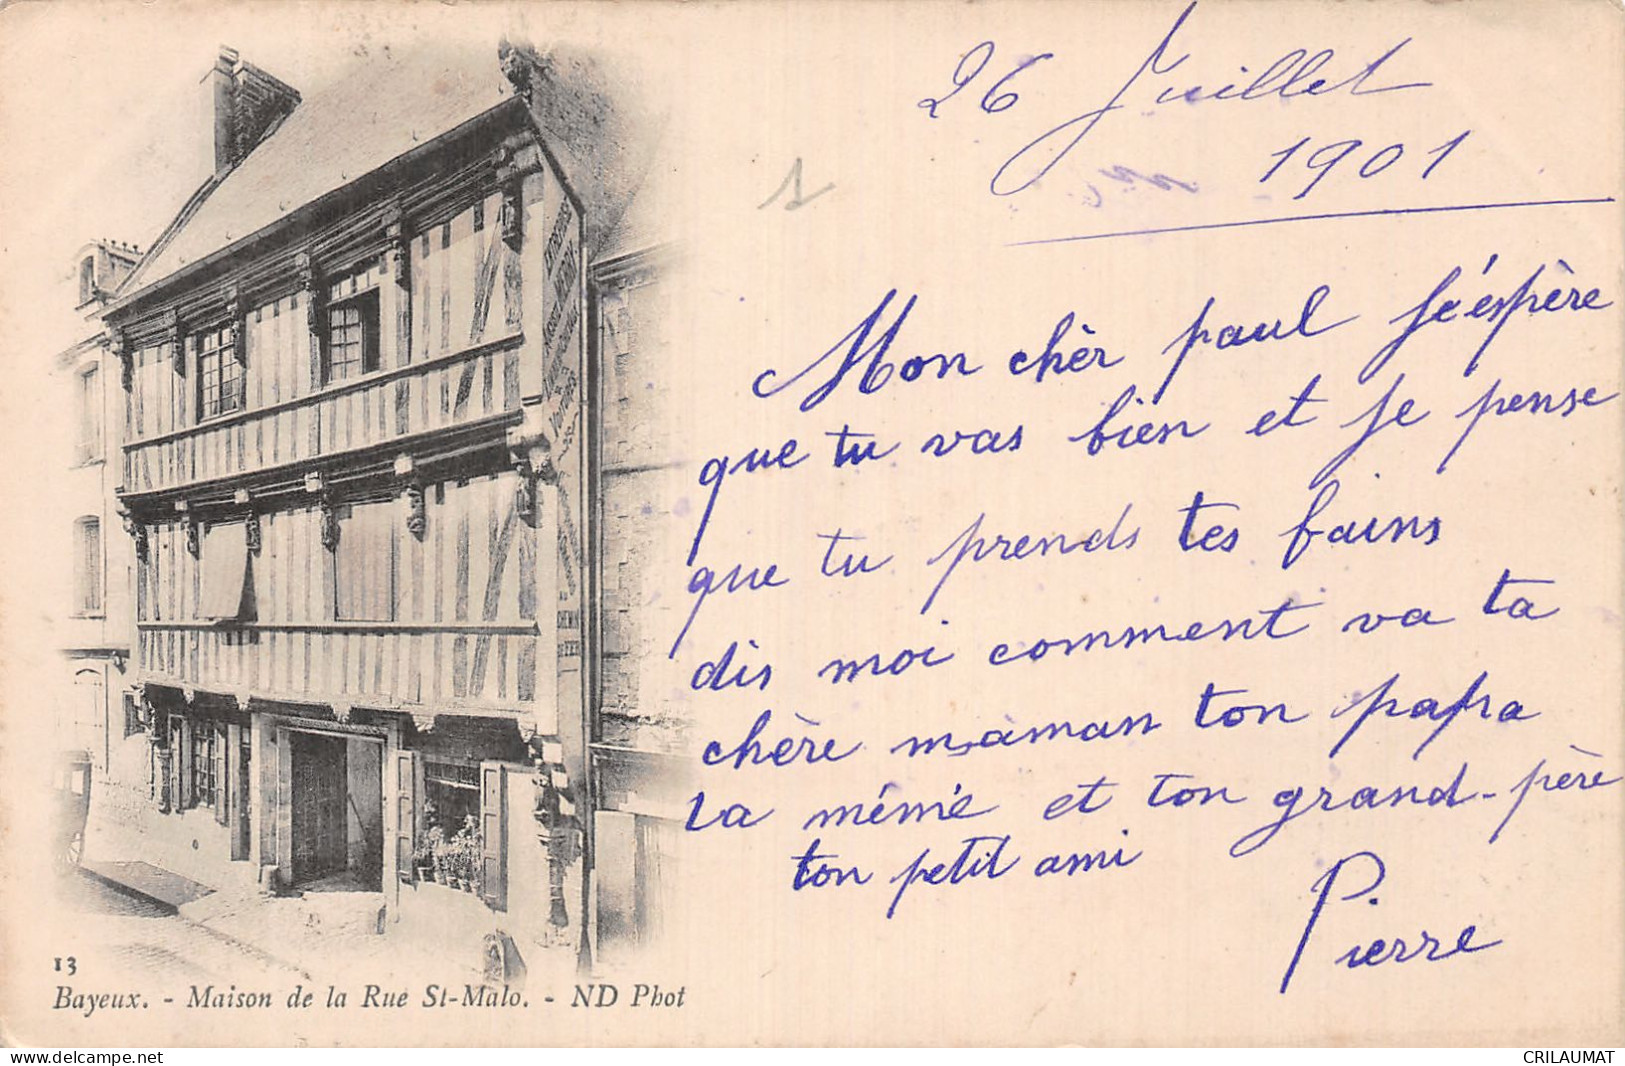 26 Juillet
1901
Mon chèr paul Je éspère
que tu vas bien et Je pense
que tu prends tes bains
dis moi comment va ta
chère maman ton papa
ta mémé et ton grand-père
ton petit ami
Pierre
13
Bayeux. - Maison de la Rue St-Malo. - ND Phot
CRILAUMAT